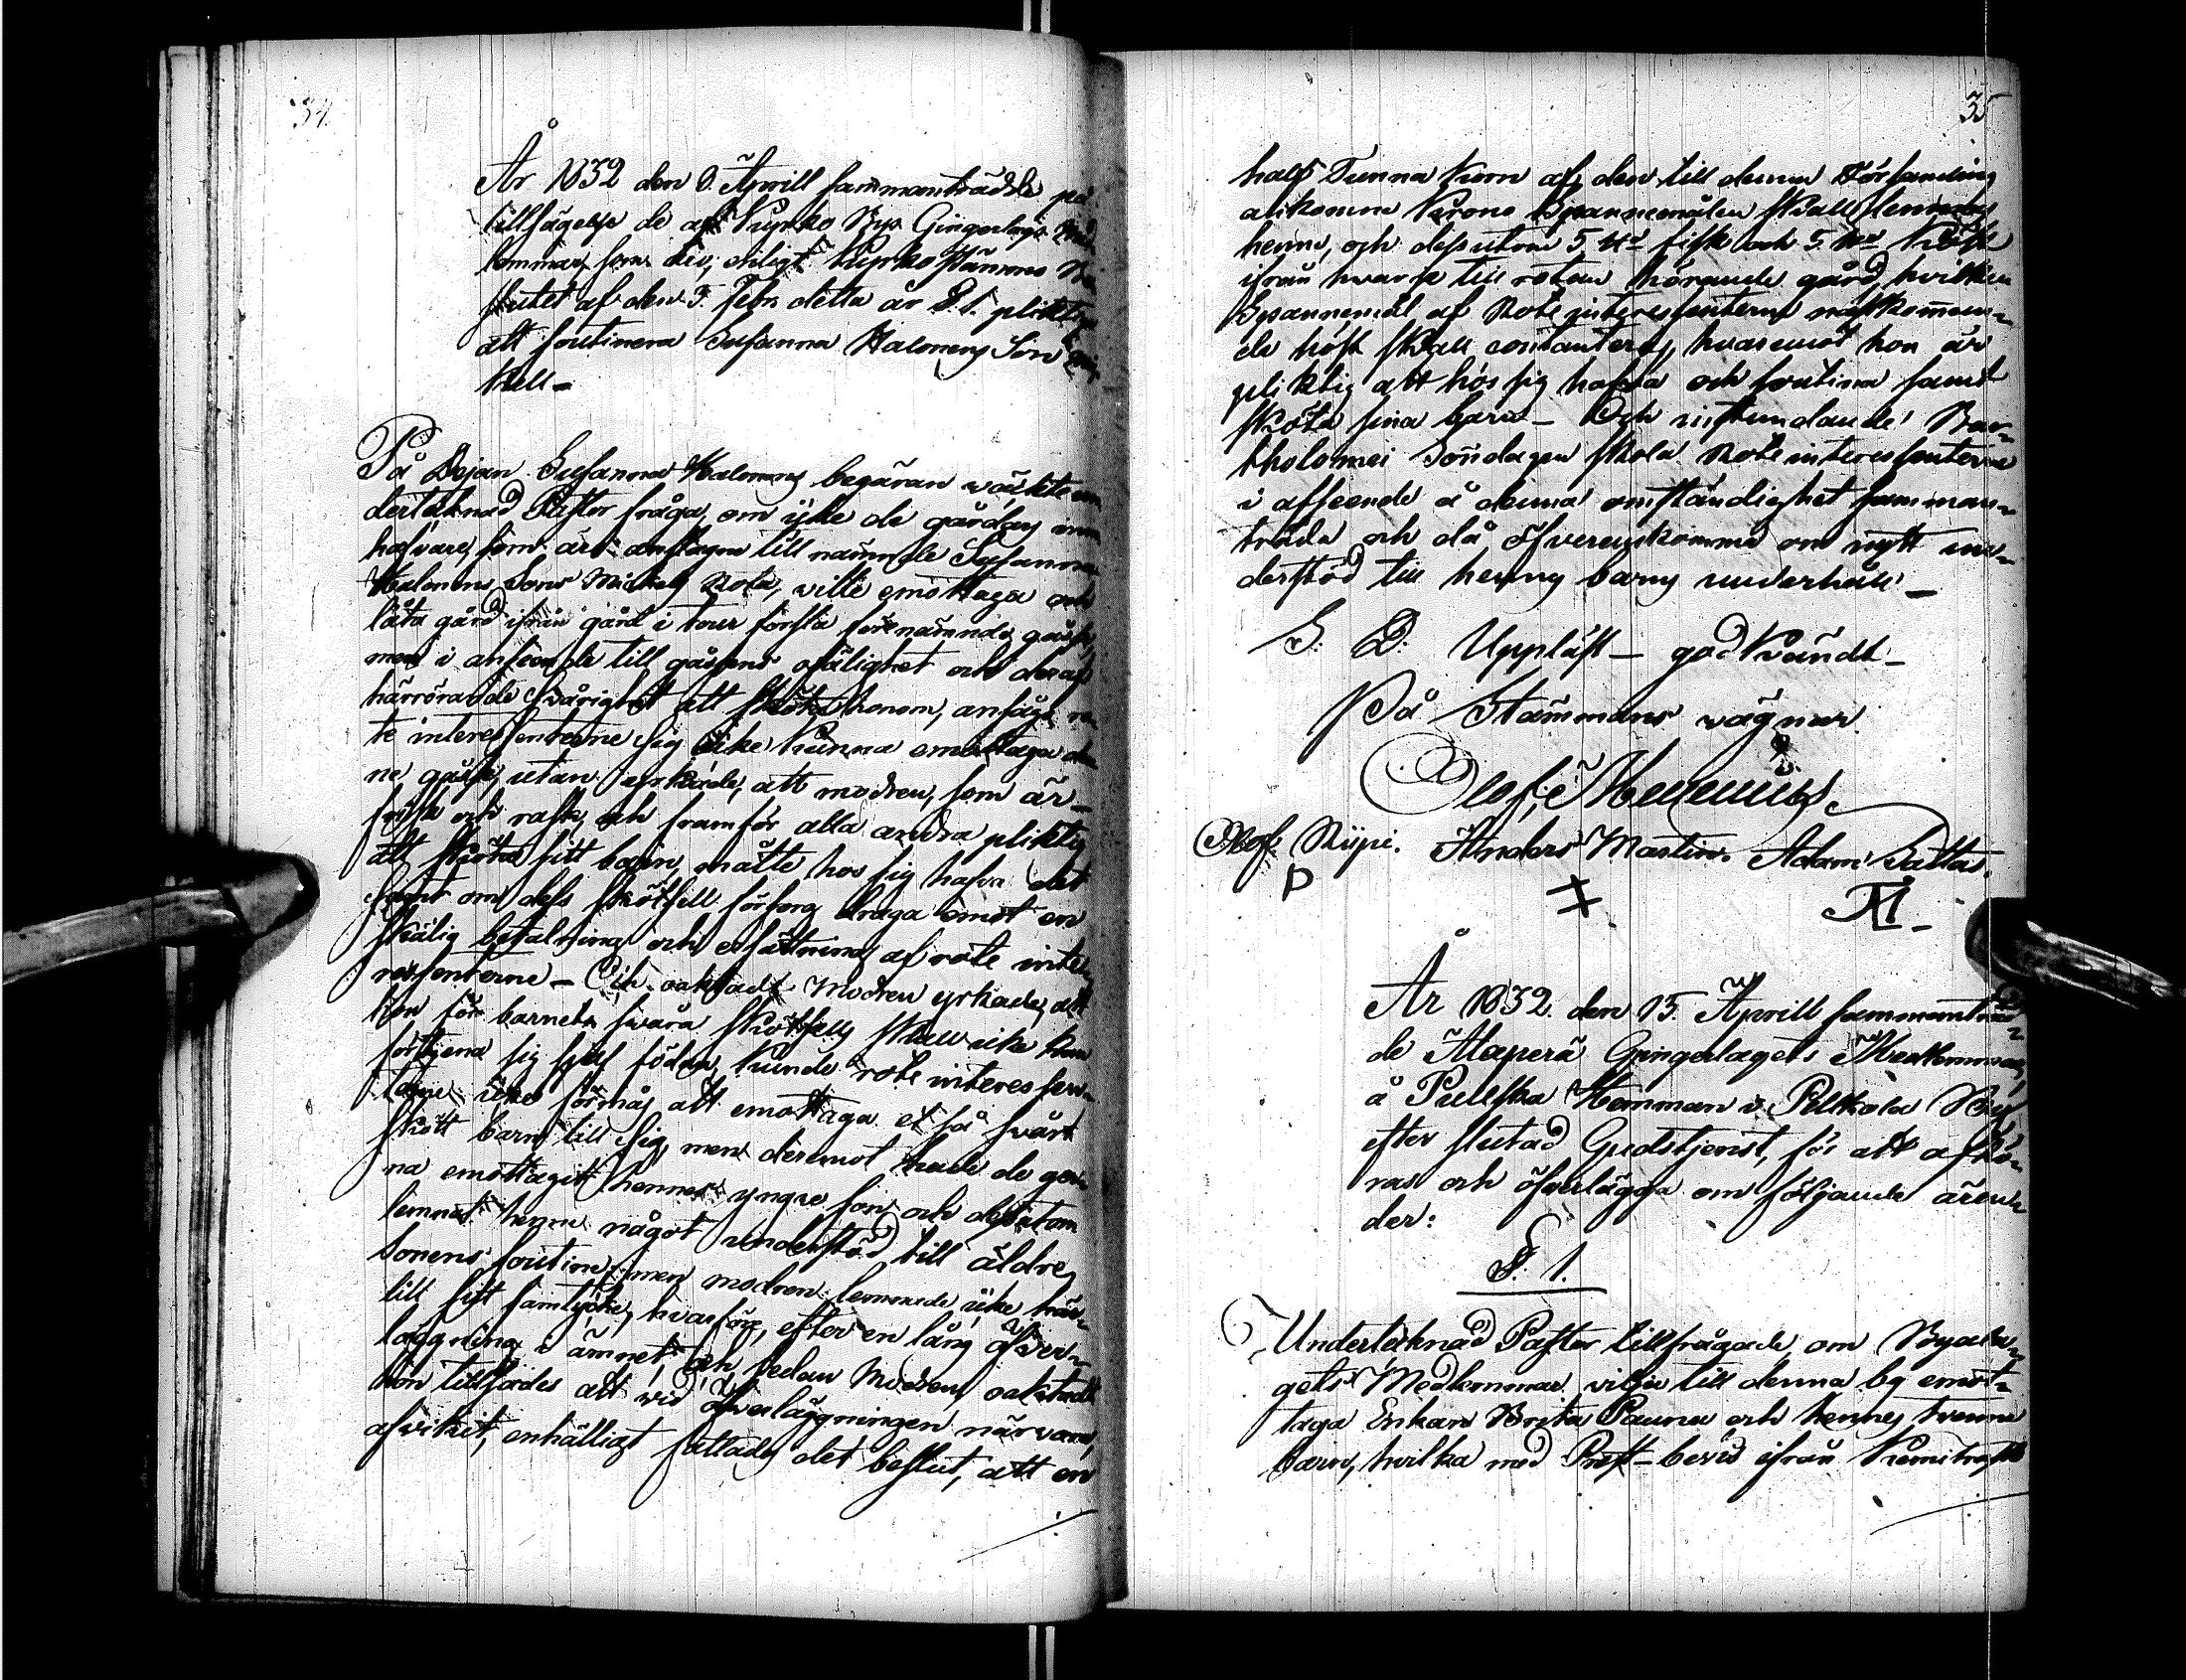 34.
År 1832 den 8. Aprill sammanträdde på
tillsägelse de af Kyrko Bys Gingerlags Med
lemmar, som äro, enligt Kyrko Stämmo Be
slutet af den 5. Febr. detta år §. 1. pliktige
att soutinera Susanna Halonens Son Mic
kell –
På Pejan Susanna Halonens begäran väckte un
dertecknad Pastor fråga, om icke de gårdars inne
hafvare, som äro anslagne till nämnde Susanna
Halonens Sons Mickels Rota, ville emottaga och
låta gård ifrån gård i tour försla förenämnde gosse,
men i anseende till gossens ofälighet och deraf
härrörande svårighet att sköta honom, ansågo ro
te interessenterne sig icke kunna emottaga den
ne gosse, utan yrkade, att modren, som är
frisk och rask, och framför alla andra pliktig
att sköta sitt barn, måtte hos sig hafva det
samt om dess skötsell försorg draga emot en
skälig betalning och ersättning af rote inte
ressenterne – Och oaktadt Modren yrkade, att
hon för barnets svåra skötsells skull icke kan
förtjena sig sjelf födan, kunde rote interessen
terne icke förmås att emottaga et så svår
skött barn till sig, men deremot hade de ger
na emottagit hennes yngre son och dessutom
lemnat henne något understöd till äldre
sonens soutien, men modren lemnade icke här
till sitt samtycke, hvarföre, efter en lång öfver
läggning i ämnet, och sedan Modren, oaktadt
hon tillsades att vid öfverläggningen närvara,
afvikit, enhälligt fattades det beslut, att en
35
half Tunna Korn af den till denna Församling
ankomne Krono Spannemålen skall lemnas
henne, och dessutom 5 ℔ fisk och 5 ℔ Kött
ifrån hvarje till rotan hörande gård, hvilken
Spannemål af Rote interessenterne nästkomman
de höst skall contanteras, hvaremot hon är
pliktig att hos sig hafva och soutinera samt
sköta sina barn – Och instundande Bar
tholomei Söndagen skola Rote interessenterne
i afseende å denna omständighet samman
träda och då öfverenskomma om nytt un
derstöd till hennes barns underhåll –
S. D. Uppläst – godkändt –
På Stämmans vägnar
Olof
Olof Riipi. Anders Martin. Adam Saitta.
P
År 1832 den 15. Aprill sammanträd
de Alaperä Gingerlagets Medlemmar
å Hemman i Pelkola By
efter slutad Gudstjenst, för att afhö
ras och öfverlägga om följande ären
der:
§. 1.
Undertecknad Pastor tillfrågade, om Byala
gets Medlemmar vilja till denna by emot
taga Enkan Brita Pauna och hennes tvenne
barn, hvilka med Prest-bevis ifrån Kemiträsk